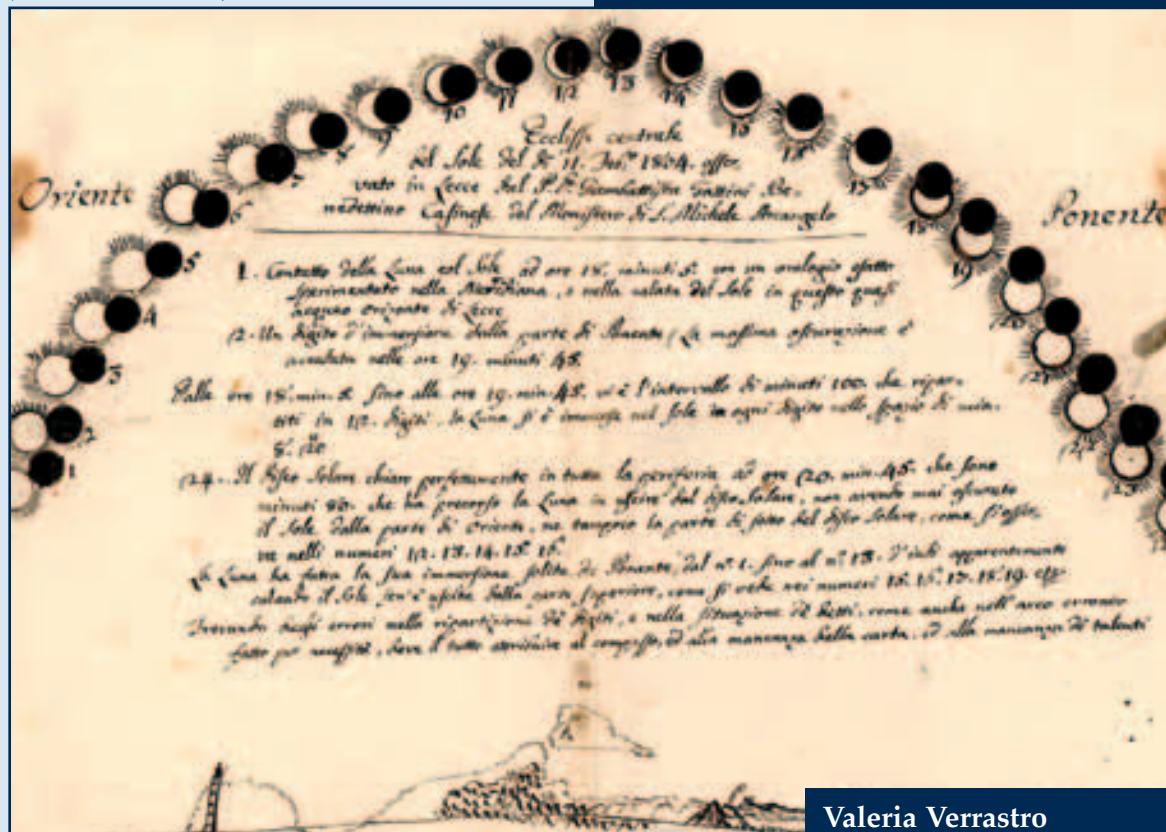 Oriente
Ponente
1
2
3
4
5
6
7
8
9
10
11
12
13
14
15
17
18
19
21
22
23
Ecclisse centrale
del Sole del dì 11. 1804. osser
vato in Lecce dal Giambattista Gattini Be
nedettino Casinese del Monistero di S. Michele Arcangelo
1. Contatto della Luna col Sole ad ore 18. minuti 5. con un orologio esatto
sperimentato nella Meridiana, e nella calata del Sole in questo quasi
acqueo orizonte di Lecce
12. Un digito d'immersione dalla parte di Ponente, La massima oscurazione è
accaduta nelle ore 19. minuti 45.
Dalle ore 18. min. 5. sino alle ore 19. min. 45. vi è l'intervallo di minuti 100. che ripar-
titi in 12. digiti, la Luna si è immersa nel Sole in ogni digito nello spazio di min.
8. 20
24. Il disco Solare chiaro perfettamente in tutta la periferia ad ore 20. min. 45. che sono
minuti che ha percorso la Luna in uscire dal disco Solare, non avendo mai oscurato
il Sole dalla parte di Oriente, ne tampoco la parte di sotto del disco Solare, come si osser
va nelli numeri 12. 13. 14. 15. 16.
La Luna ha fatta la sua immersione solita da Ponente, dal n. 1. sino al n. 13. d'indi apparentemente
calando il Sole sen'è uscita dalla parte superiore, come si vede nei numeri 17. 18. 19.
errori nella ripartizione de' digiti, e nella situazione de' come anche nell'arco erroneo
fatto per necessità, deve il tutto al compasso, ed alla mancanza della carta, ed alla mancanza de' talenti
Valeria Verrastro